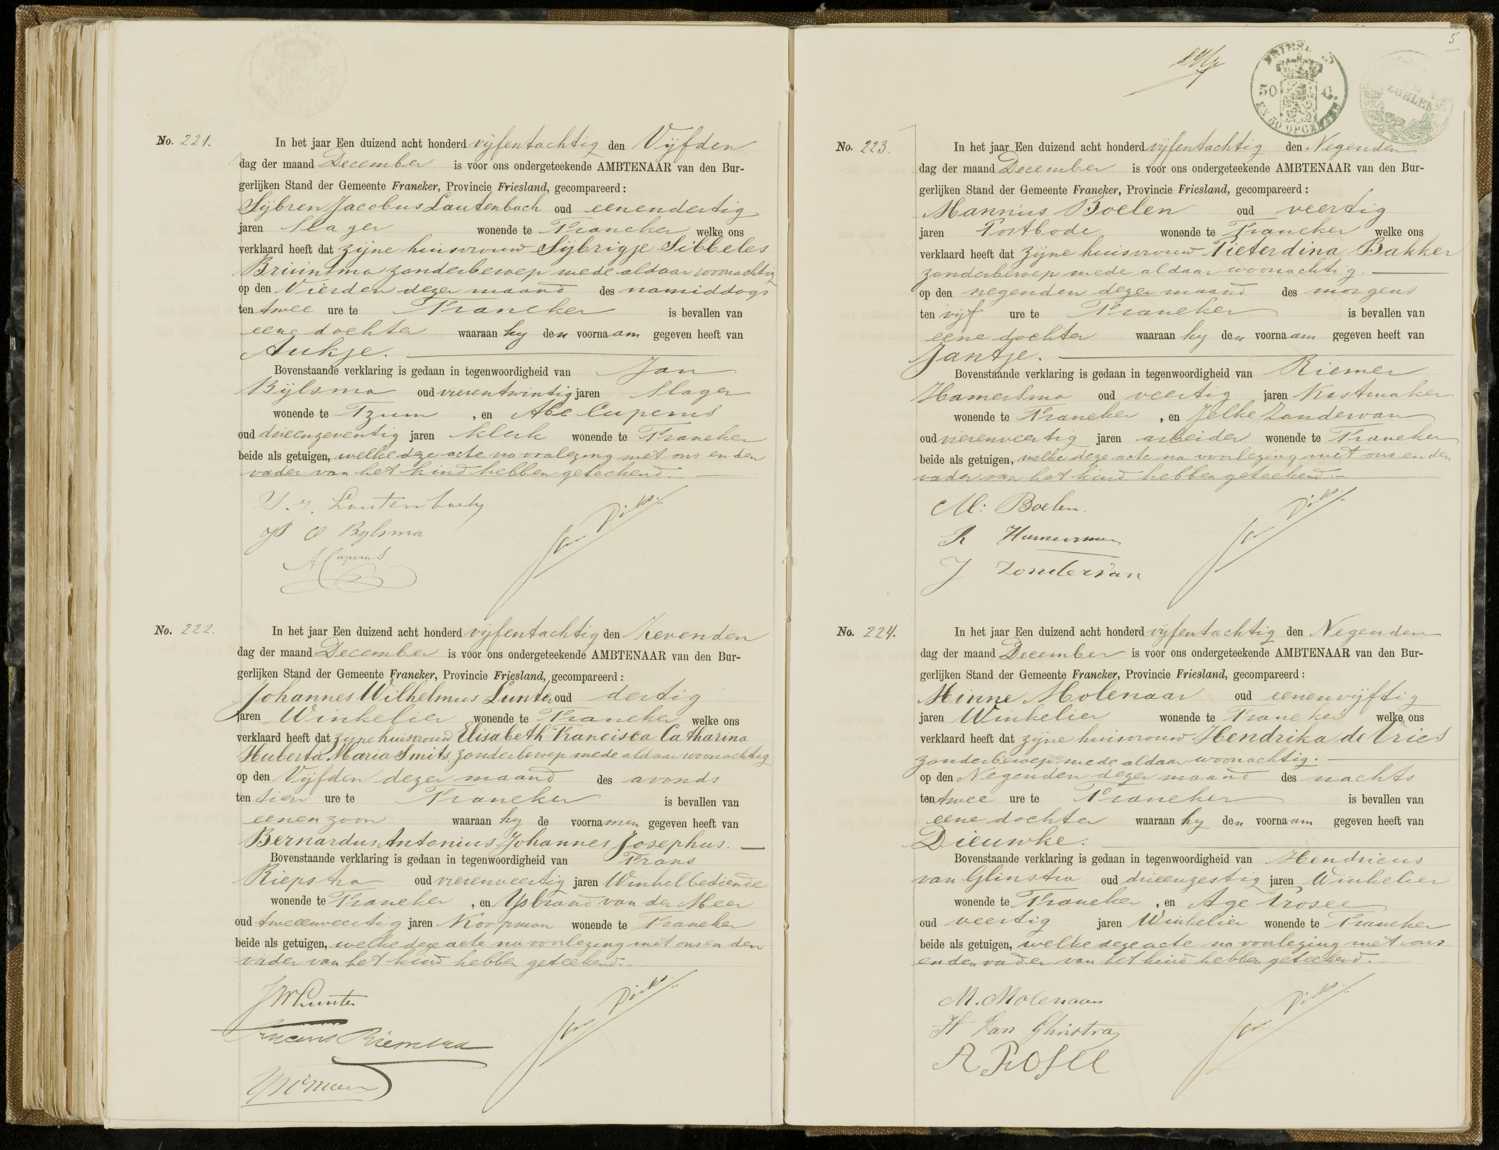 No. 221. In het jaar Een duizend acht honderd vijfentachtig den Vijfden
dag der maand December is voor ons ondergeteekende AMBTENAAR van den Bur-
gerlijken Stand der Gemeente Franeker, Provincie Friesland, gecompareerd:
Sijbren Jacobus Lautenbach oud eenendertig
jaren Slager wonende te Franeker welke ons
verklaard heeft dat zijne huisvrouw Sijbrigje Sibbeles
Bruinsma zonder beroep mede aldaar woonachtig
op den Vierden dezer maand des namiddags
ten twee ure te Franeker is bevallen van
eene dochter waaraan hij den voornaam gegeven heeft van
Aukje.
Bovenstaande verklaring is gedaan in tegenwoordigheid van Jan
Bijlsma oud vierentwintig jaren Slager
wonende te Tzum, en Abe Cuperus
oud drieenzeventig jaren klerk wonende te Franeker
beide als getuigen, welke deze acte na voorlezing met ons en den
vader van het kind hebben geteekend.
S. J. Lautenbach
J O Bijlsma
A Cuperus
No. 222. In het jaar Een duizend acht honderd vijfentachtig den Zevenden
dag der maand December is voor ons ondergeteekende AMBTENAAR van den Bur-
gerlijken Stand der Gemeente Franeker, Provincie Friesland, gecompareerd:
Johannes Wilhelmus Lunter oud dertig
jaren Winkelier wonende te Franeker welke ons
verklaard heeft dat zijne huisvrouw Elisabeth Francisca Catharina
Huberta Maria Smits zonder beroep mede aldaar woonachtig
op den Vijfden dezer maand des avonds
ten tien ure te Franeker is bevallen van
eenen zoon waaraan hij de voornamen gegeven heeft van
Bernardus Antonius Johannes Josephus.
Bovenstaande verklaring is gedaan in tegenwoordigheid van Frans
Riepstra oud vierenveertig jaren Winkelbediende
wonende te Franeker, en IJsbrand van der Meer
oud tweeenveertig jaren Koopman wonende te Franeker
beide als getuigen, welke deze acte na voorlezing met ons en den
vader van het kind hebben geteekend.
JW Lunter
5
FRIESLAND
50 C.
EN 50 OPCENTEN
No. 223. In het jaar Een duizend acht honderd vijfentachtig den Negenden
dag der maand December is voor ons ondergeteekende AMBTENAAR van den Bur-
gerlijken Stand der Gemeente Franeker, Provincie Friesland, gecompareerd:
Mannus Boelen oud veertig
jaren Postbode wonende te Franeker welke ons
verklaard heeft dat zijne huisvrouw Pieterdina Bakker
zonder beroep mede aldaar woonachtig.
op den negenden dezer maand des morgens
ten vijf ure te Franeker is bevallen van
eene dochter waaraan hij den voornaam gegeven heeft van
Jantje.
Bovenstaande verklaring is gedaan in tegenwoordigheid van Riemer
Hamersma oud veertig jaren Kistmaker
wonende te Franeker, en Jelke Zondervan
oud vierenveertig jaren arbeider wonende te Franeker
beide als getuigen, welke deze acte na voorlezing met ons en den
vader van het kind hebben geteekend.
M: Boelen.
R Hamersma
J Zondervan
No. 224. In het jaar Een duizend acht honderd vijfentachtig den Negenden
dag der maand December is voor ons ondergeteekende AMBTENAAR van den Bur-
gerlijken Stand der Gemeente Franeker, Provincie Friesland, gecompareerd:
Minne Molenaar oud eenenvijftig
jaren Winkelier wonende te Franeker welke ons
verklaard heeft dat zijne huisvrouw Hendrika de Vries
zonder beroep mede aldaar woonachtig.
op den Negenden dezer maand des nachts
ten twee ure te Franeker is bevallen van
eene dochter waaraan hij den voornaam gegeven heeft van
Dieuwke.
Bovenstaande verklaring is gedaan in tegenwoordigheid van Hendricus
van Glinstra oud drieenzestig jaren Winkelier
wonende te Franeker, en Age Prosee
oud veertig jaren Winkelier wonende te Franeker
beide als getuigen, welke deze acte na voorlezing met ons
en den vader van het kind hebben geteekend.
M. Molenaar
H van Glinstra
A Prosee